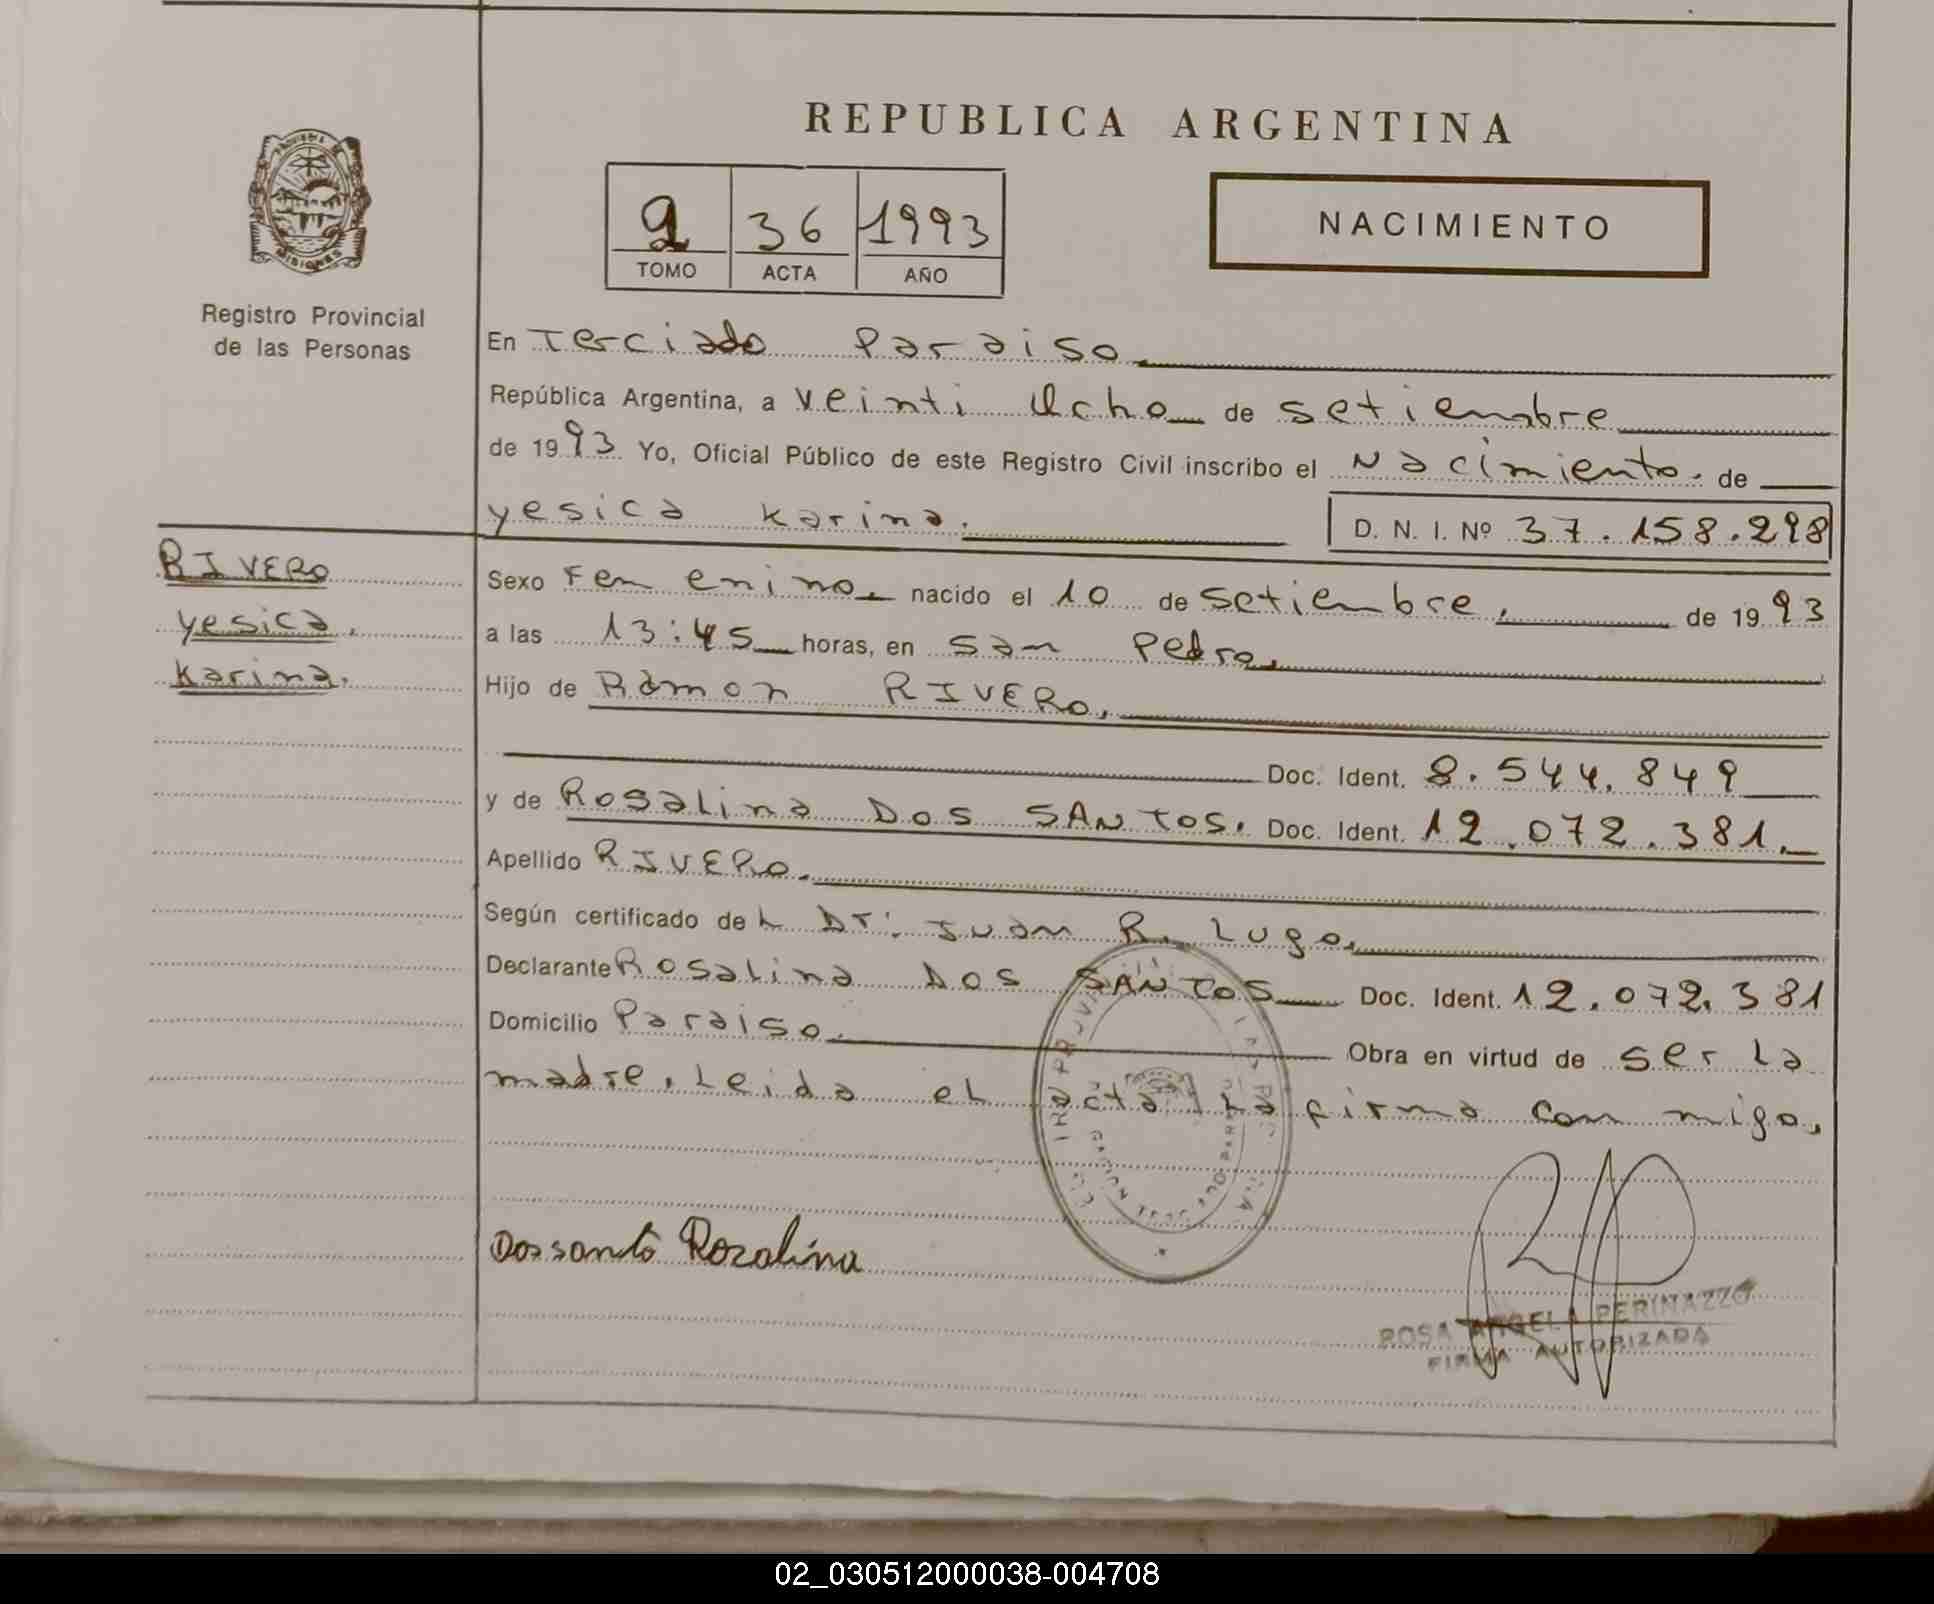 REPUBLICA ARGENTINA
2 36 1993
TOMO ACTA AÑO
NACIMIENTO
PROVINCIA DE MISIONES
Registro Provincial
de las Personas
En Terciado Paraiso
República Argentina, a veinti Ocho de setiembre
de 1993 Yo, Oficial Público de este Registro Civil inscribo el Nacimiento. de
yesica Karina. D. N. I. Nº 37.158.298
RIVERO
yesica.
Karina.
Sexo Femenino, nacido el 10 de setiembre, de 1993
a las 13:45 horas, en San Pedro,
Hijo de Ramon RIVERO,
Doc. Ident. 8.544.849
y de Rosalina DOS SANTOS. Doc. Ident. 12.072.381.
Apellido RIVERO.
Según certificado del Dr: Juan R. Lugo,
Declarante Rosalina DOS SANTOS Doc. Ident. 12.072.381
Domicilio Paraiso. Obra en virtud de ser La
madre. Leida el acta La firma con migo.
Dossanto Rozalina
ROSA ANGELA PERINAZZO
FIRMA AUTORIZADA
02_030512000038-004708